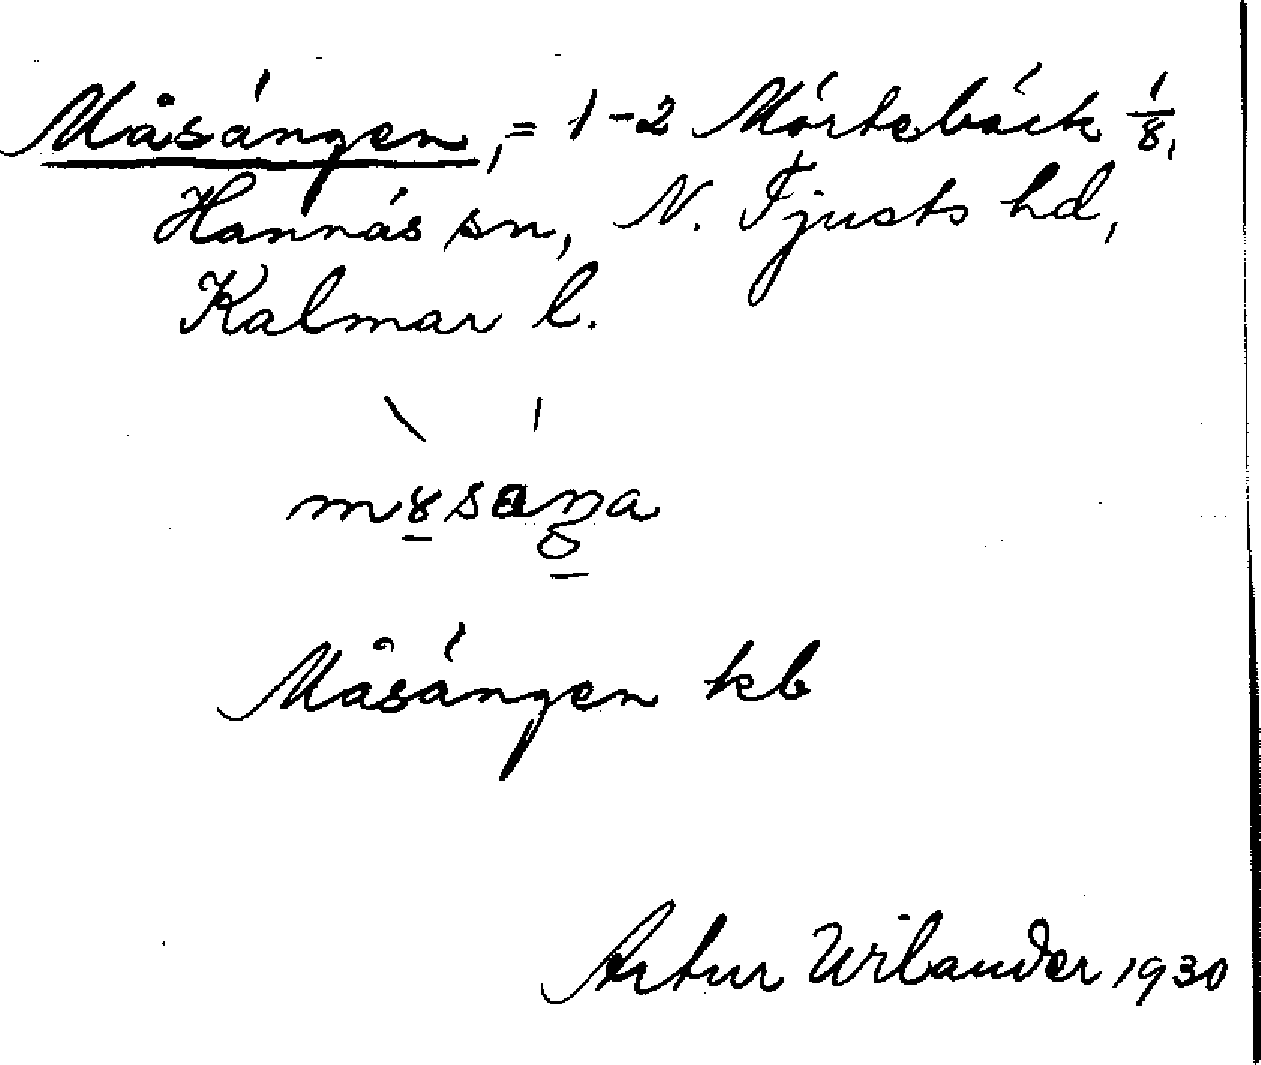 Måsängen, = 1-2 Mörtebäck 1/8,
Hannäs sn, N. Tjusts hd,
Kalmar l.
Måsängen kb
Artur Wilander 1930